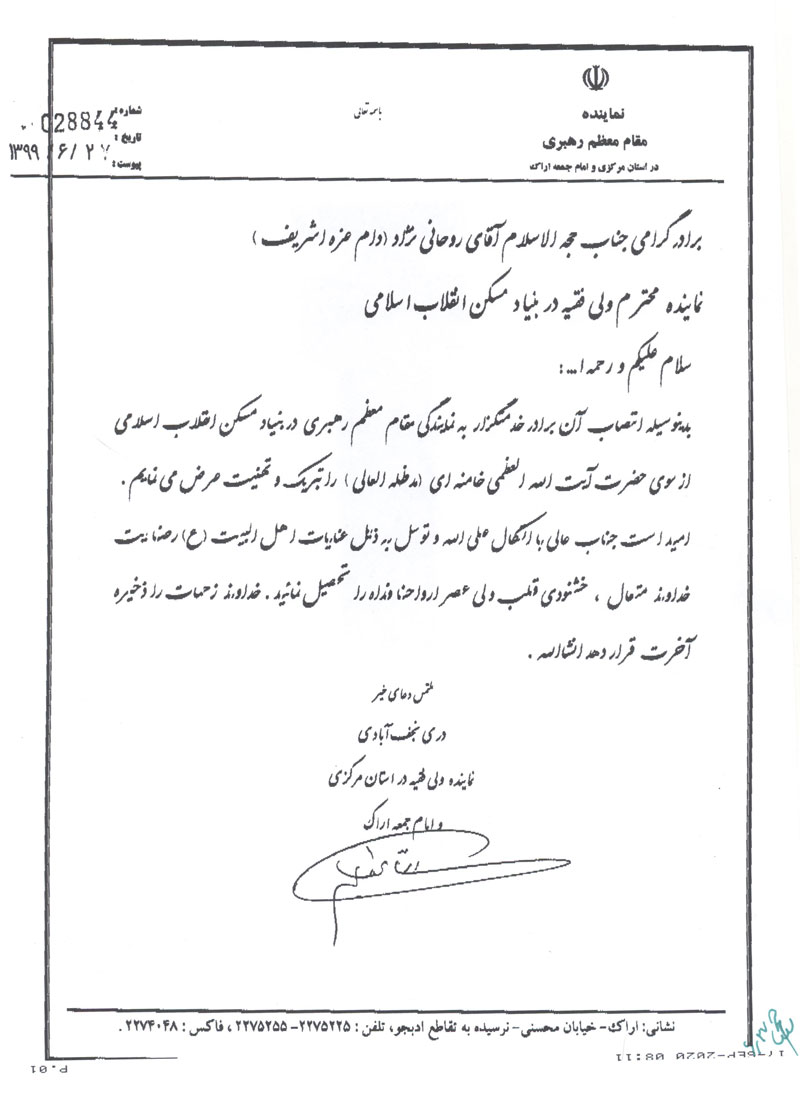 باسمه تعالی
نماینده
مقام معظم رهبری
در استان مرکزی و امام جمعه اراک
شماره:
028844
تاریخ: ۱۳۹۹/۶/۲۷
پیوست:
برادر گرامی جناب حجه الاسلام آقای روحانی نژاد (دام عزه اشریف)
نماینده محترم ولی فقیه در بنیاد مسکن انقلاب اسلامی
سلام علیکم و رحمه ا...:
بدینوسیله انتصاب آن برادر خدمتگزار به نمایندگی مقام معظم رهبری در بنیاد مسکن انقلاب اسلامی
از سوی حضرت آیت الله العظمی خامنه ای (مدظله العالی) را تبریک و تهنیت عرض می نمایم.
امید است جناب عالی با اتکال علی الله و توسل به ذیل عنایات اهل البیت (ع) رضایت
خداوند متعال، خشنودی قلب ولی عصر ارواحنا فداه را تحصیل نمائید. خداوند زحمات را ذخیره
آخرت قرار دهد انشاالله.
ملتمس دعای خیر
دری نجف آبادی
نماینده ولی فقیه در استان مرکزی
و امام جمعه اراک
نشانی: اراک- خیابان محسنی- نرسیده به تقاطع ادبجو، تلفن: ۲۲۷۵۲۲۵- ۲۲۷۵۲۵۵، فاکس: ۲۲۷۴۰۴۸.
17-SEP-2020 08:11
P.01